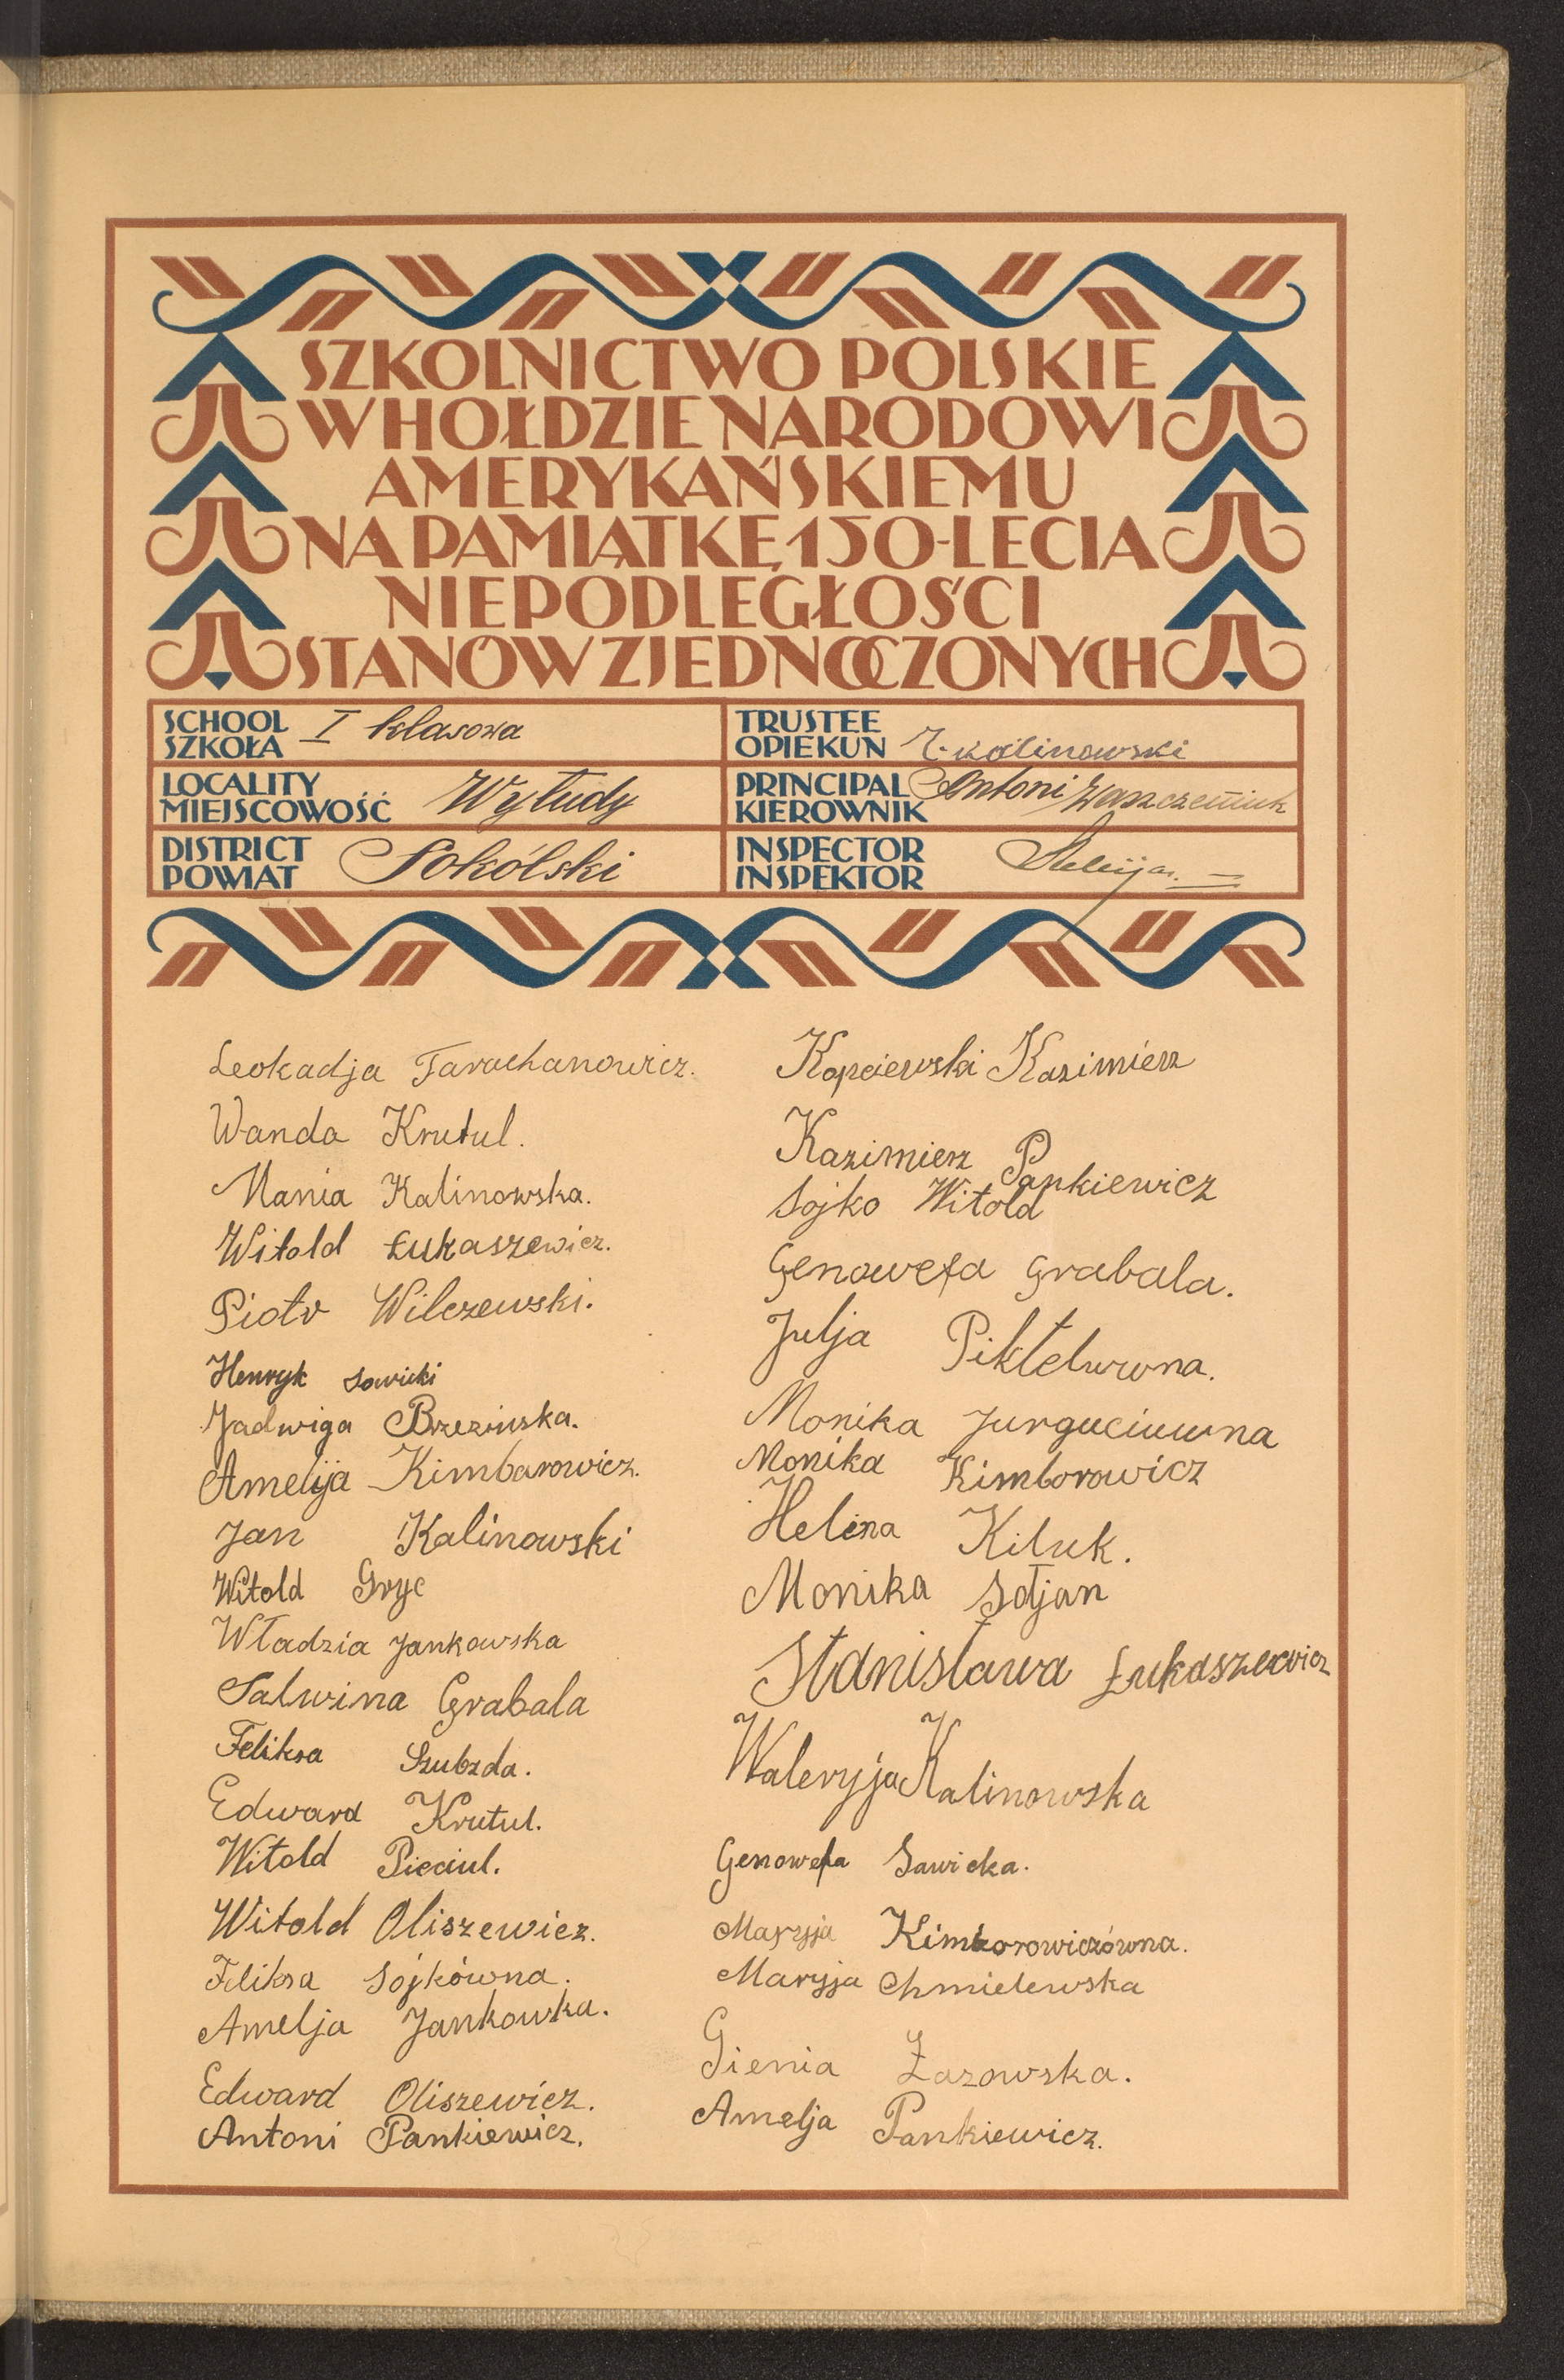 SZKOLNICTWO POLSKIE
W HOŁDZIE NARODOWI
AMERYKAŃSKIEMU
NA PAMIĄTKĘ 150-LECIA
NIEPODLEGŁOŚCI
STANÓW ZJEDNOCZONYCH
SCHOOL
SZKOŁA
I klasowa
TRUSTEE
OPIEKUN
kalinowski
LOCALITY
MIEJSCOWOŚĆ
Wyłudy
PRINCIPAL
KIEROWNIK
Antoni
DISTRICT
POWIAT
Sokólski
INSPECTOR
INSPEKTOR
Leokadja Tarachanowicz.
Wanda Krutul.
Mania Kalinowska.
Witold Łukaszewicz.
Piotr Wilczewski.
Henryk Sawicki
Jadwiga Brzezinska.
Amelija Kimbarowicz.
Jan Kalinowski
Witold Gryc
Władzia Jankowska
Salwina Grabala
Feliksa Szubzda.
Edward Krutul.
Witold Pieciul.
Witold Oliszewicz.
Feliksa Sojkówna.
Amelja Jankowka.
Edward Oliszewicz.
Antoni Pankiewicz.
Kopciewski Kazimierz
Kazimierz Pankiewicz
Sojko Witold
Genowefa Grabala.
Julja Piktelwwna.
Monika Jurguciuwna
Monika Kimborowicz
Helena Kiluk.
Monika Sołjan
Stanisława Łukaszewicz
Waleryja Kalinowska
Genowefa Sawicka.
Maryja Kimborowiczówna.
Maryja Chmielewska
Gienia Łazowska.
Amelja Pankiewicz.